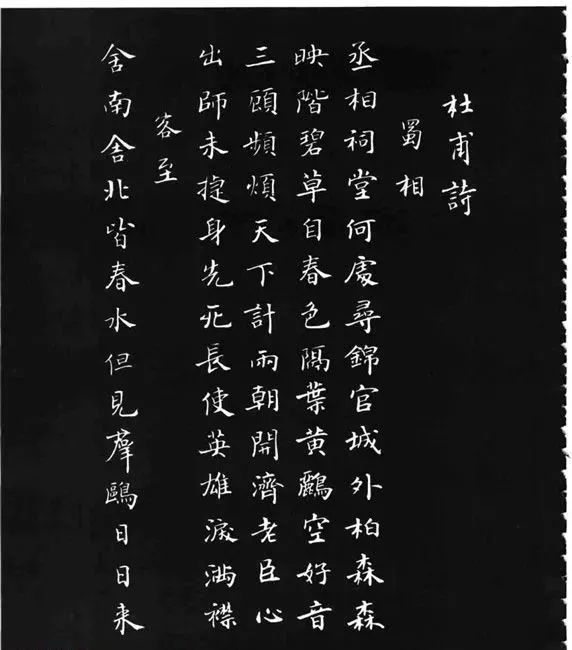 杜甫詩
蜀相
丞相祠堂何處尋錦官城外柏森森
映階碧草自春色隔葉黄鸝空好音
三顧頻煩天下計兩朝開濟老臣心
出師未捷身先死長使英雄淚滿襟
客至
舍南舍北皆春水但見羣鷗日日来